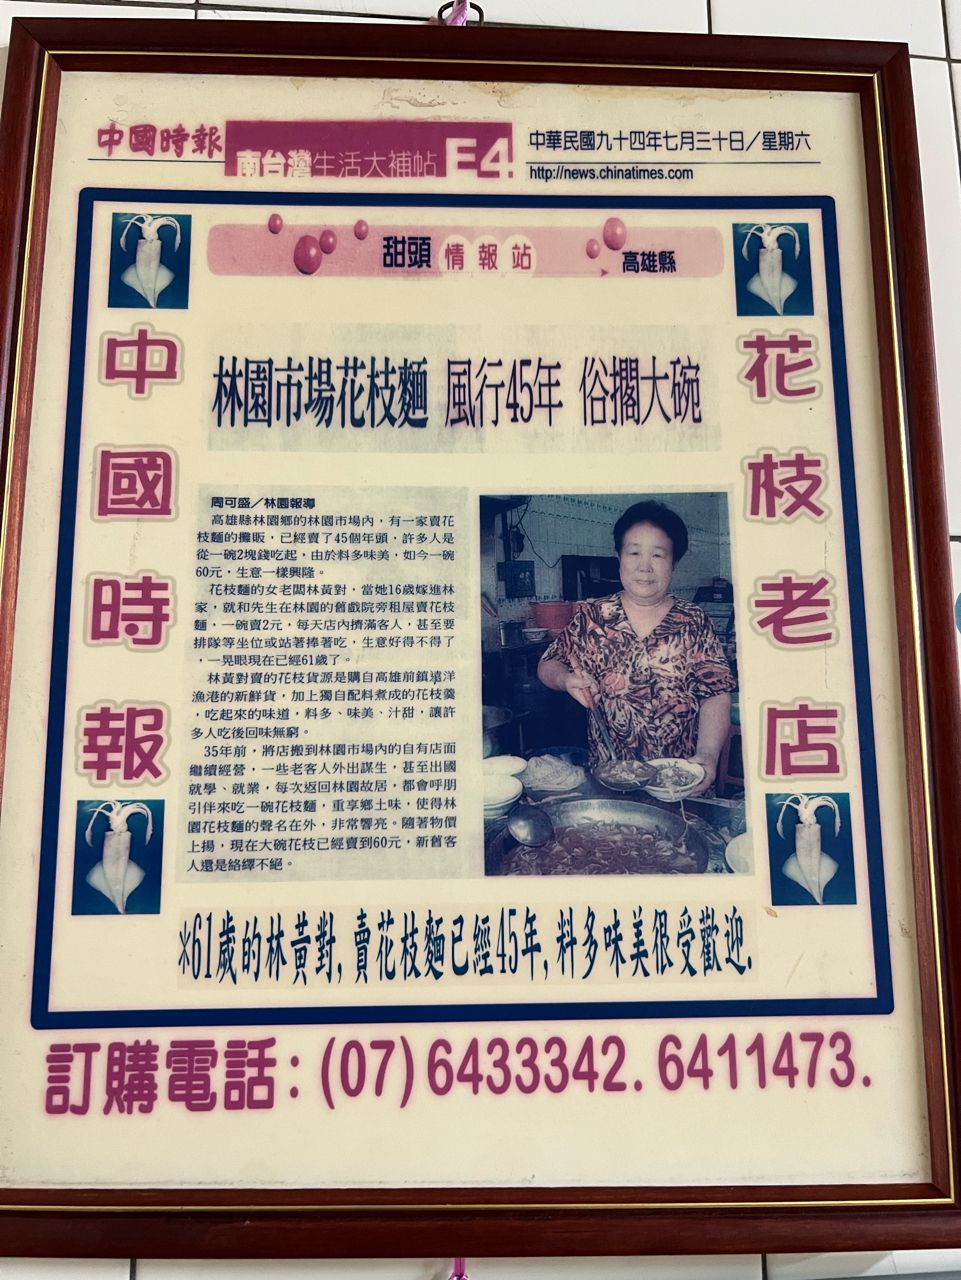 中國時報 南台灣生活大補帖 E4. 中華民國九十四年七月三十日／星期六
http://news.chinatimes.com
甜頭情報站 高雄縣
中國時報
花枝老店
林園市場花枝麵 風行45年 俗擱大碗
周可盛／林園報導
高雄縣林園鄉的林園市場內，有一家賣花
枝麵的攤販，已經賣了45個年頭，許多人是
從一碗2塊錢吃起，由於料多味美，如今一碗
60元，生意一樣興隆。
花枝麵的女老闆林黃對，當她16歲嫁進林
家，就和先生在林園的舊戲院旁租屋賣花枝
麵，一碗賣2元，每天店內擠滿客人，甚至要
排隊等坐位或站著捧著吃，生意好得不得了
，一晃眼現在已經61歲了。
林黃對賣的花枝貨源是購自高雄前鎮遠洋
漁港的新鮮貨，加上獨自配料煮成的花枝羹
，吃起來的味道，料多、味美、汁甜，讓許
多人吃後回味無窮。
35年前，將店搬到林園市場內的自有店面
繼續經營，一些老客人外出謀生，甚至出國
就學、就業，每次返回林園故居，都會呼朋
引伴來吃一碗花枝麵，重享鄉土味，使得林
園花枝麵的聲名在外，非常響亮。隨著物價
上揚，現在大碗花枝已經賣到60元，新舊客
人還是絡繹不絕。
*61歲的林黃對,賣花枝麵已經45年,料多味美很受歡迎.
訂購電話:(07)6433342.6411473.